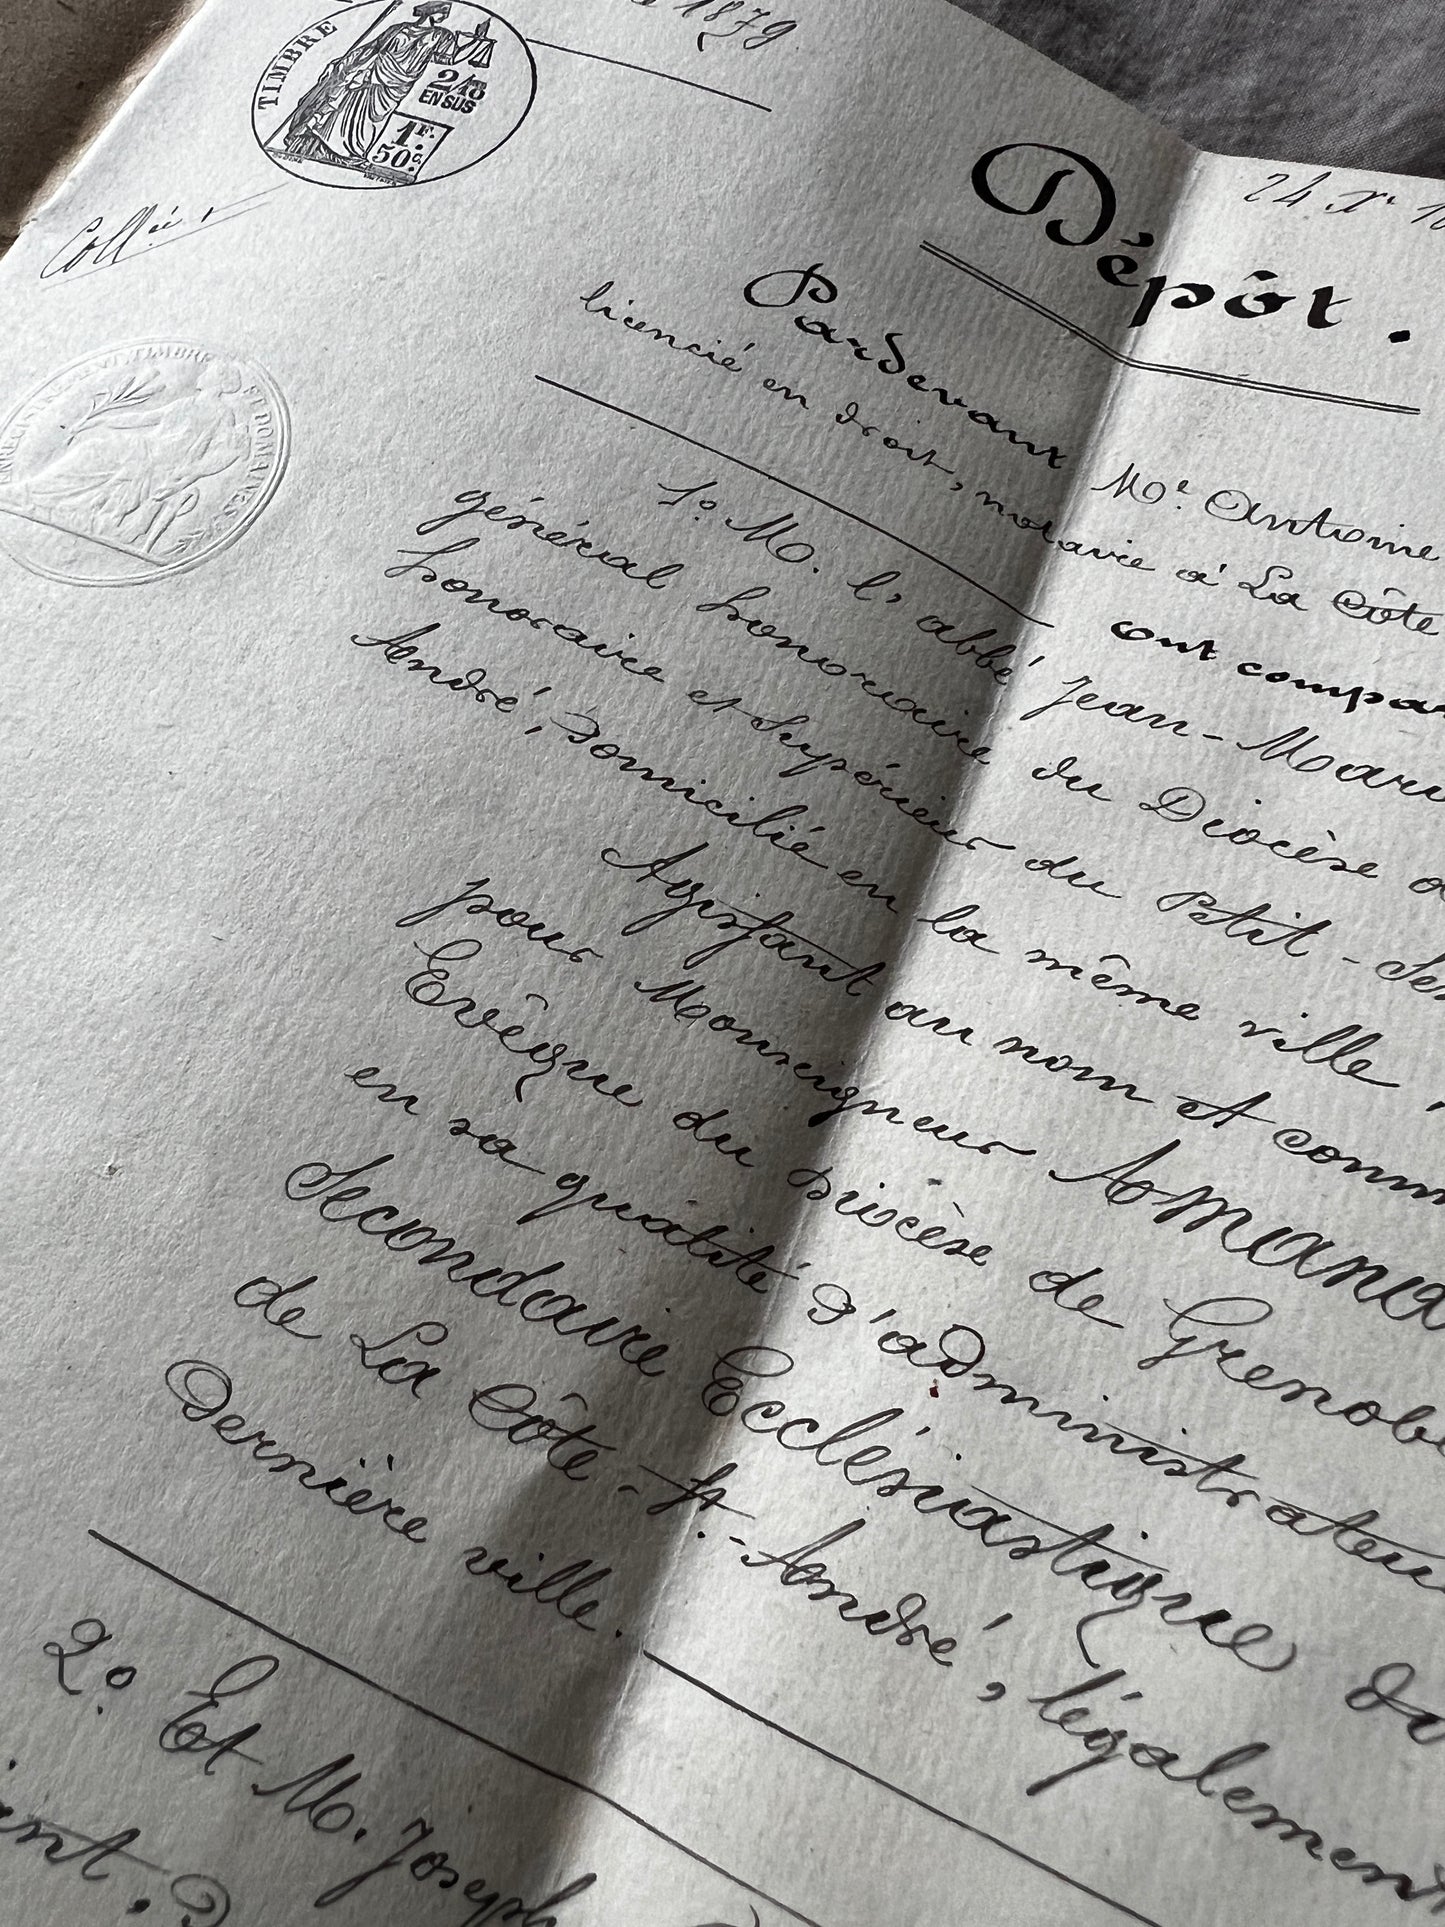 1879
TIMBRE
2/10
EN SUS
1F.
50c.
24 Xe
Collée
TIMBRE ET DOMAINES
Dépôt.
Pardevant Me. Antoine
licencié en droit, notaire à La Côte
ont compa
1o. M. l'abbé Jean-Mari
général honoraire du Diocèse
honoraire et Supérieur du Petit-Se
André, domicilié en la même ville,
Agissant au nom et comm
pour Monseigneur Amand
Evêque du Diocèse de Grenob
en sa qualité d'administrateu
Secondaire Ecclésiastique
de La Côte-St.-André, légalement
Dernière ville.
2o. Et M. Joseph